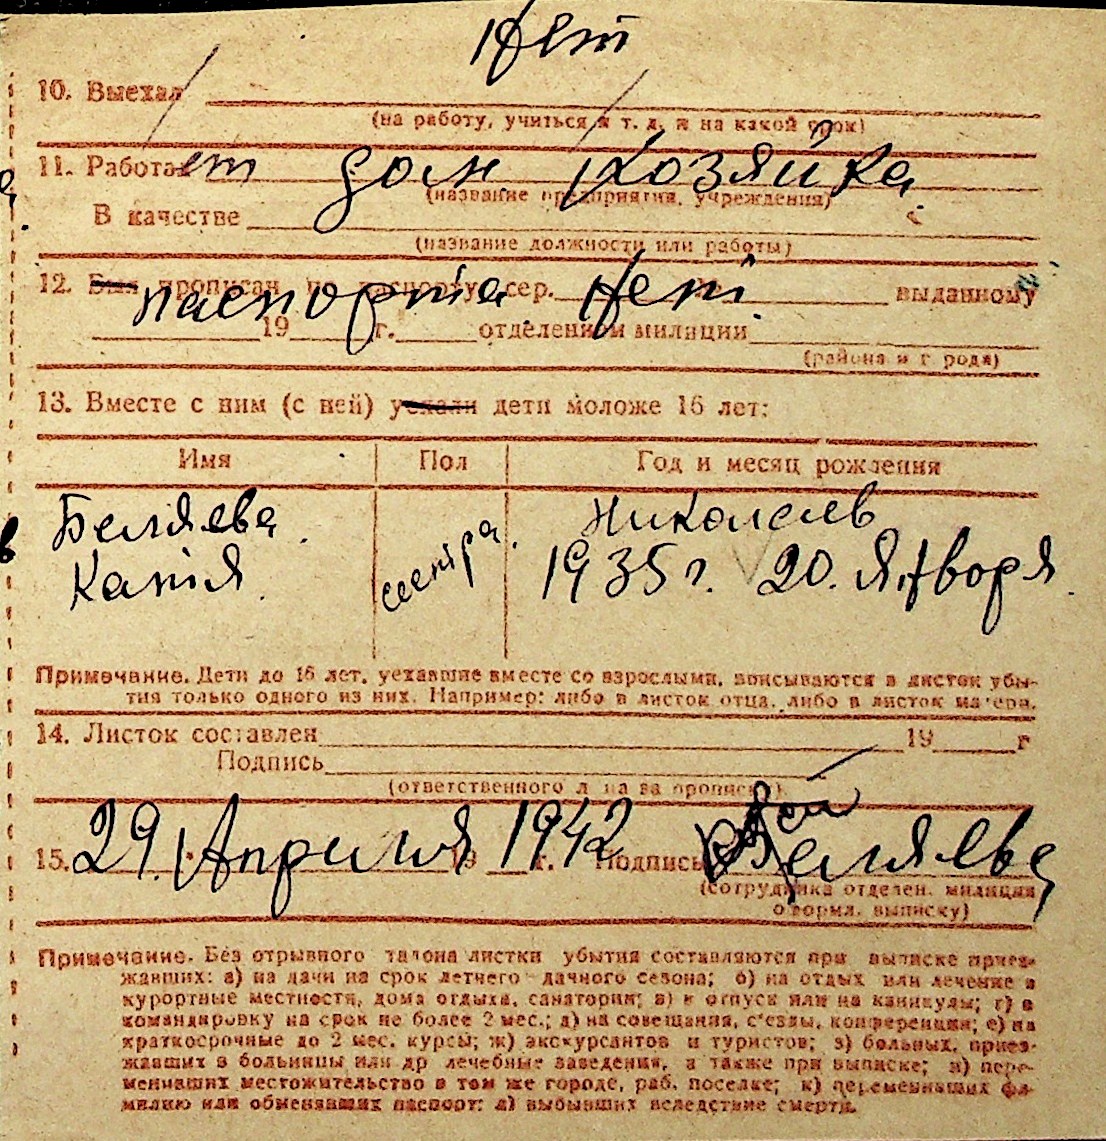 Нет
10. Выехал
(на работу, учиться и т. д. и на какой срок)
11. Работает дом хозяйка
(название предприятия, учреждения)
В качестве
(название должности или работы)
12. Был прописан по паспорту сер. № выданному
паспорта Нет
19 г. отделением милиции
(района и города)
13. Вместе с ним (с ней) уехали дети моложе 16 лет:
Имя Пол Год и месяц рождения
Беляева Николаев
Катя сестра 1935 г. 20. Января
Примечание. Дети до 16 лет, уехавшие вместе со взрослыми, вписываются в листок убы-
тия только одного из них. Например: либо в листок отца, либо в листок матери.
14. Листок составлен 19 г
Подпись
(ответственного лица за прописку)
15. 29. Апреля 1942 19 г. Подпись Беляева
(сотрудника отделен. милиции
оформл. выписку)
Примечание. Без отрывного талона листки убытия составляются при выписке приез-
жавших: а) на дачи на срок летнего дачного сезона; б) на отдых или лечение в
курортные местности, дома отдыха, санатории; в) в отпуск или на каникулы; г) в
командировку на срок не более 2 мес.; д) на совещания, с'езды, конференции; е) на
краткосрочные до 2 мес. курсы; ж) экскурсантов и туристов; з) больных, приез-
жавших в больницы или др лечебные заведения, а также при выписке; и) пере-
менивших местожительство в том же городе, раб. поселке; к) переменивших фа-
милию или обменявших паспорт; л) выбывших вследствие смерти.